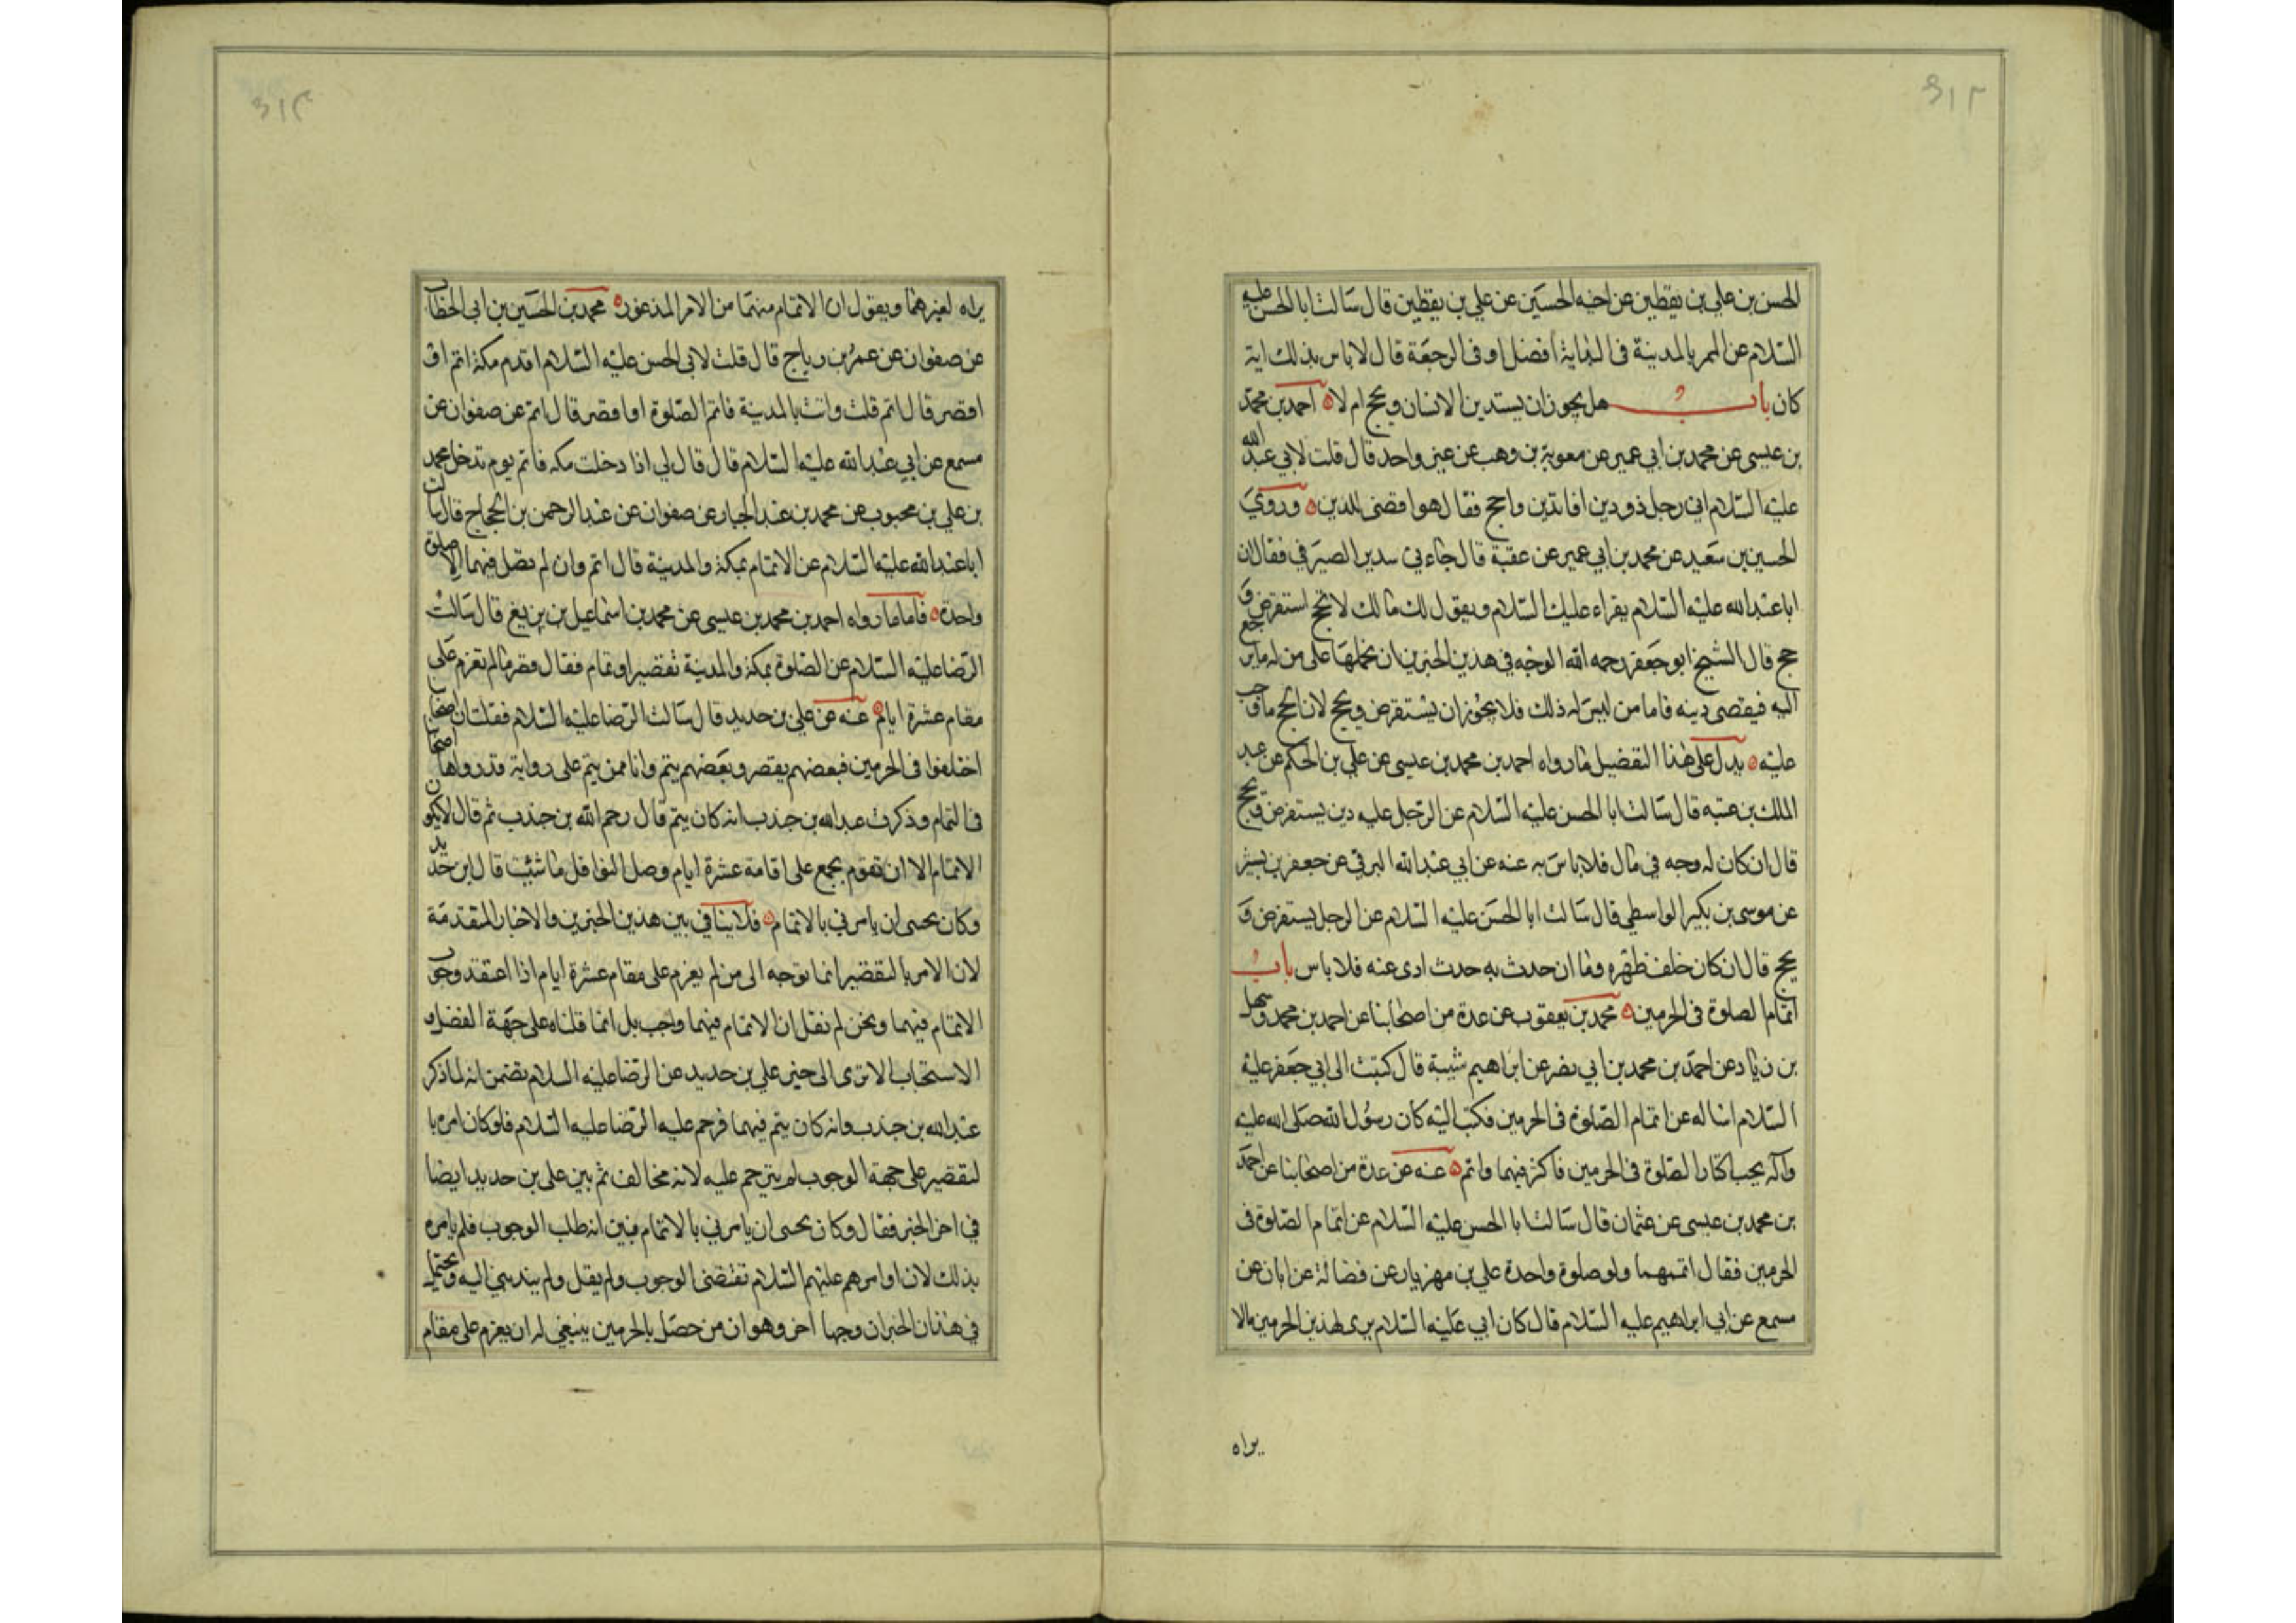 الحسن بن علي بن يقطين عن اخيه الحسين عن علي بن يقطين قال سالت ابا الحسن عليه
السلام عن الممر بالمدينة في البداية افضل او في الرجعة قال لاباس بذلك اية
كان باب هل يجوز ان يستدين الانسان ويحج ام لا احمد بن محمد
بن عيسى عن محمد بن ابي عمير عن معوية بن وهب عن غير واحد قال قلت لابي عبد الله
عليه السلام اني رجل ذو دين افاتدين واحج فقال هو اقضى للدين وروي
الحسين بن سعيد عن محمد بن ابي عمير عن عقبة قال جاءني سدير الصيرفي فقال ان
ابا عبد الله عليه السلام يقراء عليك السلام ويقول لك مالك لا تحج استقرض و
حج قال الشيخ ابو جعفر رحمه الله الوجه في هذين الخبرين ان نحملها على من له مايرجع
اليه فيقضي دينه فاما من ليس له ذلك فلا يجوز ان يستقرض ويحج لان الحج ما وجب
عليه يدل على هذا التفضيل ما رواه احمد بن محمد بن عيسى عن علي بن الحكم عن عبد
الملك بن عتبه قال سالت ابا الحسن عليه السلام عن الرجل عليه دين يستقرض ويحج
قال ان كان له وجه في مال فلا باس به عنه عن ابي عبد الله البرقي عن جعفر بن بشير
عن موسى بن بكير الواسطي قال سالت ابا الحسن عليه السلام عن الرجل يستقرض و
يحج قال ان كان خلف ظهره وما ان حدث به حدث ادى عنه فلا باس باب
اتمام الصلوة في الحرمين محمد بن يعقوب عن عدة من اصحابنا عن احمد بن محمد وسهل
بن زياد عن احمد بن محمد بن ابي نصر عن ابراهيم شيبة قال كتبت الى ابي جعفر عليه
السلام اساله عن اتمام الصلوة في الحرمين فكتب اليه كان رسول الله صلى الله عليه
وآله يحب اكثار الصلوة في الحرمين فاكثر فيهما واتم عنه عن عدة من اصحابنا عن احمد
بن محمد بن عيسى عن عثمان قال سالت ابا الحسن عليه السلام عن اتمام الصلوة في
الحرمين فقال اتمهما ولو صلوة واحدة علي بن مهزيار عن فضالة عن ابان عن
مسمع عن ابي ابراهيم عليه السلام قال كان ابي عليه السلام يرى لهذين الحرمين مالا
يراه
يراه لغيرهما ويقول ان الاتمام منهما من الامر المذخور محمد بن الحسين بن ابي الخطاب
عن صفوان عن عمر بن رياح قال قلت لابي الحسن عليه السلام اقدم مكة اتم او
اقصر قال اتم قلت وانت بالمدينة فاتم الصلوة او اقصر قال اتم عن صفوان عن
مسمع عن ابي عبد الله عليه السلام قال قال لي اذا دخلت مكه فاتم يوم تدخل محمد
بن علي بن محبوب عن محمد بن عبد الجبار عن صفوان عن عبد الرحمن بن الحجاج قال سالت
ابا عبد الله عليه السلام عن الاتمام بمكة والمدينة قال اتم وان لم تصل فيهما الا صلوة
واحدة فاما ما رواه احمد بن محمد بن عيسى عن محمد بن اسماعيل بن بزيغ قال سالت
الرضا عليه السلام عن الصلوة بمكة والمدينة تقصير او تمام فقال قصر مالم تعزم على
مقام عشرة ايام عنه عن علي بن حديد قال سالت الرضا عليه السلام فقلت ان اصحابنا
اختلفوا في الحرمين فبعضهم يقصر وبعضهم يتم وانا ممن يتم على رواية قد رواها اصحابنا
في التمام وذكرت عبد الله بن جندب انه كان يتم قال رحم الله بن جندب ثم قال لا يكون
الاتمام الا ان تقوم بجمع على اقامة عشرة ايام وصل النوافل ما شئت قال ابن حديد
وكان يحسى ان يامرني بالاتمام فلا ينافي بين هذين الخبرين والاخبار المتقدمة
لان الامر بالتقصير انما توجه الى من لم يعزم على مقام عشرة ايام اذا اعتقد وجوب
الاتمام فيهما ونحن لم نقل ان الاتمام فيهما واجب بل انما قلناه على جهة الفضل و
الاستحباب الا ترى الى خبر علي بن حديد عن الرضا عليه السلام يتضمن انه لما ذكر
عبد الله بن جندب وانه كان يتم فيهما فرحم عليه الرضا عليه السلام فلو كان امره با
لتقصير على جهة الوجوب لم يترحم عليه لانه مخالف ثم بين علي بن حديد ايضا
في اخر الخبر فقال وكان يحسى ان يامرني بالاتمام فبين انه طلب الوجوب فلم يامره
بذلك لان اوامرهم عليهم السلام تقتضي الوجوب ولم يقل ولم يندبني اليه ويحتمل
في هذان الخبران وجها اخر وهو ان من حصل بالحرمين ينبغي له ان يعزم على مقام